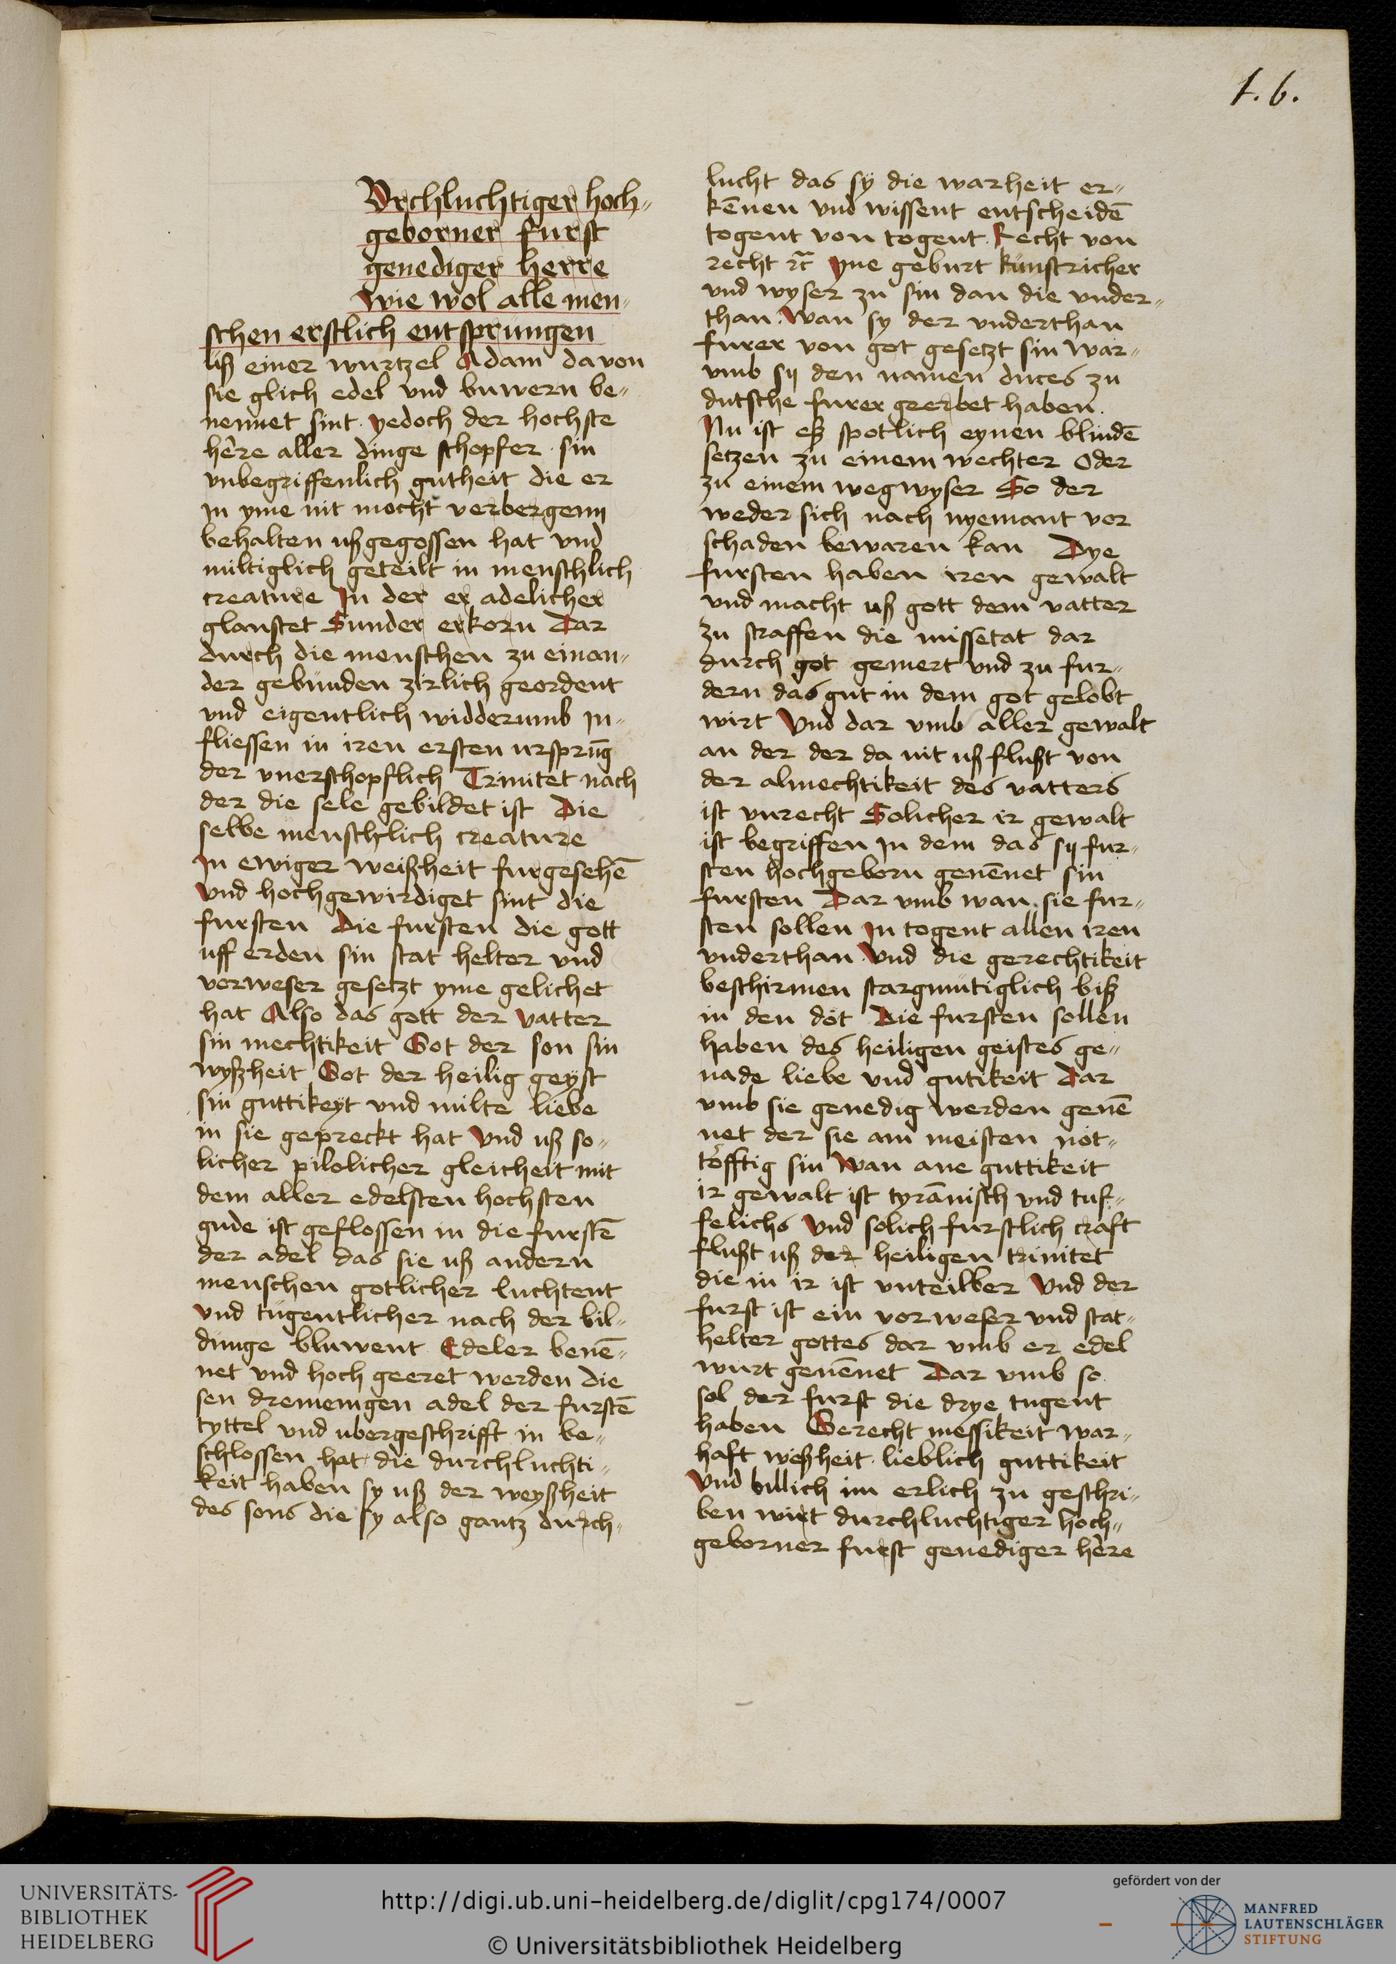 1. b.
Vrchluchtiger hoch-
geborner furst
genediger herre
wie wol alle men-
schen erstlich entsprungen
uß einer wurtzel Adam da von
sie glich edel vnd buwern be-
nennet sint yedoch der hochste
hẽre aller dinge schopfer sin
vnbegriffenlich gutheit die er
jn yme nit mocht verbergenn
behalten ußgegossen hat vnd
miltiglich geteilt in menschlich
creature Jn der er adelicher
glanstet Sunder erkorn Dar
durch die menschen zu einan-
der gebunden zirlich geordent
vnd eigentlich widderumb jn-
fliessen in iren ersten ursprũg
der vnerschopflich Trinitet nach
der die sele gebildet ist Die
selbe menschlich creature
Jn ewiger weißheit furgesehẽ
vnd hochgewirdiget sint die
fursten Die fursten die gott
uff erden sin stat helter vnd
verweser gesetzt yme gelichet
hat Also das gott der vatter
sin mechtikeit Got der son sin
wyßheit Got der heilig geyst
sin guttikeyt vnd milte liebe
in sie gepreckt hat Vnd uß so-
licher pilolicher gleicheit mit
dem aller edelsten hochsten
gude ist geflossen in die furstẽ
der adel das sie uß andern
menschen gotlicher luchtent
vnd tugentlicher nach der bil-
dunge bluwent Edeler benẽ-
net vnd hoch geeret werden die
sen dremenigen adel der furstẽ
tyttel vnd ubergeschrifft in be-
schlossen hat die durchluchti-
keit haben sy uß der weyßheit
des sons die sy also gantz durch-
lucht das sy die warheit er-
kẽnen vnd wissent entscheidẽ
togent von togent Recht von
recht rc̃ yne geburt kunstricher
vnd wyser zu sin dan die vnder-
than. Wan sy der vnderthan
furer von got gesetzt sin war-
vmb sy den namen duces zu
dutsche furer geerbet haben.
Nu ist eß spotlich eynen blindẽ
setzen zu einem wechter Oder
zu einem weg wyser So der
weder sich nach nyemant vor
schaden bewaren kan Dye
fursten haben iren gewalt
vnd macht uß gott dem vatter
zu straffen die missetat dar
durch got gemert vnd zu fur-
dern das gut in dem got gelobt
wirt Vnd dar vmb aller gewalt
an der der da nit uß flußt von
der almechtikeit des vatters
ist vnrecht Solicher ir gewalt
ist begriffen jn dem das sy fur-
sten hochgeborn genẽnet sin
fursten Dar vmb wan sie fur-
sten sollen jn togent allen iren
vnderthan Vnd die gerechtikeit
beschirmen starcgmutiglich biß
in den dot Die fursten sollen
haben des heiligen geistes ge-
nade liebe vnd gutikeit Dar
vmb sie genedig werden genẽ
net der sie am meisten not-
tofftig sin Wan ane guttikeit
ir gewalt ist tyrãnisch vnd tuf-
felichs Vnd solich furstlich craft
flußt uß der heiligen trinitet
die in ir ist vnteilber Vnd der
furst ist ein vorweser vnd stat-
helter gottes dar vmb er edel
wurt genẽnet Dar vmb so
sol der furst die drye tugent
haben Gerecht messikeit war-
haft weßheit lieblich guttikeit
Vnd billich im erlich zu geschri-
ben wirt durchluchtiger hoch-
geborner furst genediger hẽre
UNIVERSITÄTS-
BIBLIOTHEK
HEIDELBERG
http://digi.ub.uni-heidelberg.de/diglit/cpg174/0007
© Universitätsbibliothek Heidelberg
gefördert von der
MANFRED
LAUTENSCHLÄGER
STIFTUNG